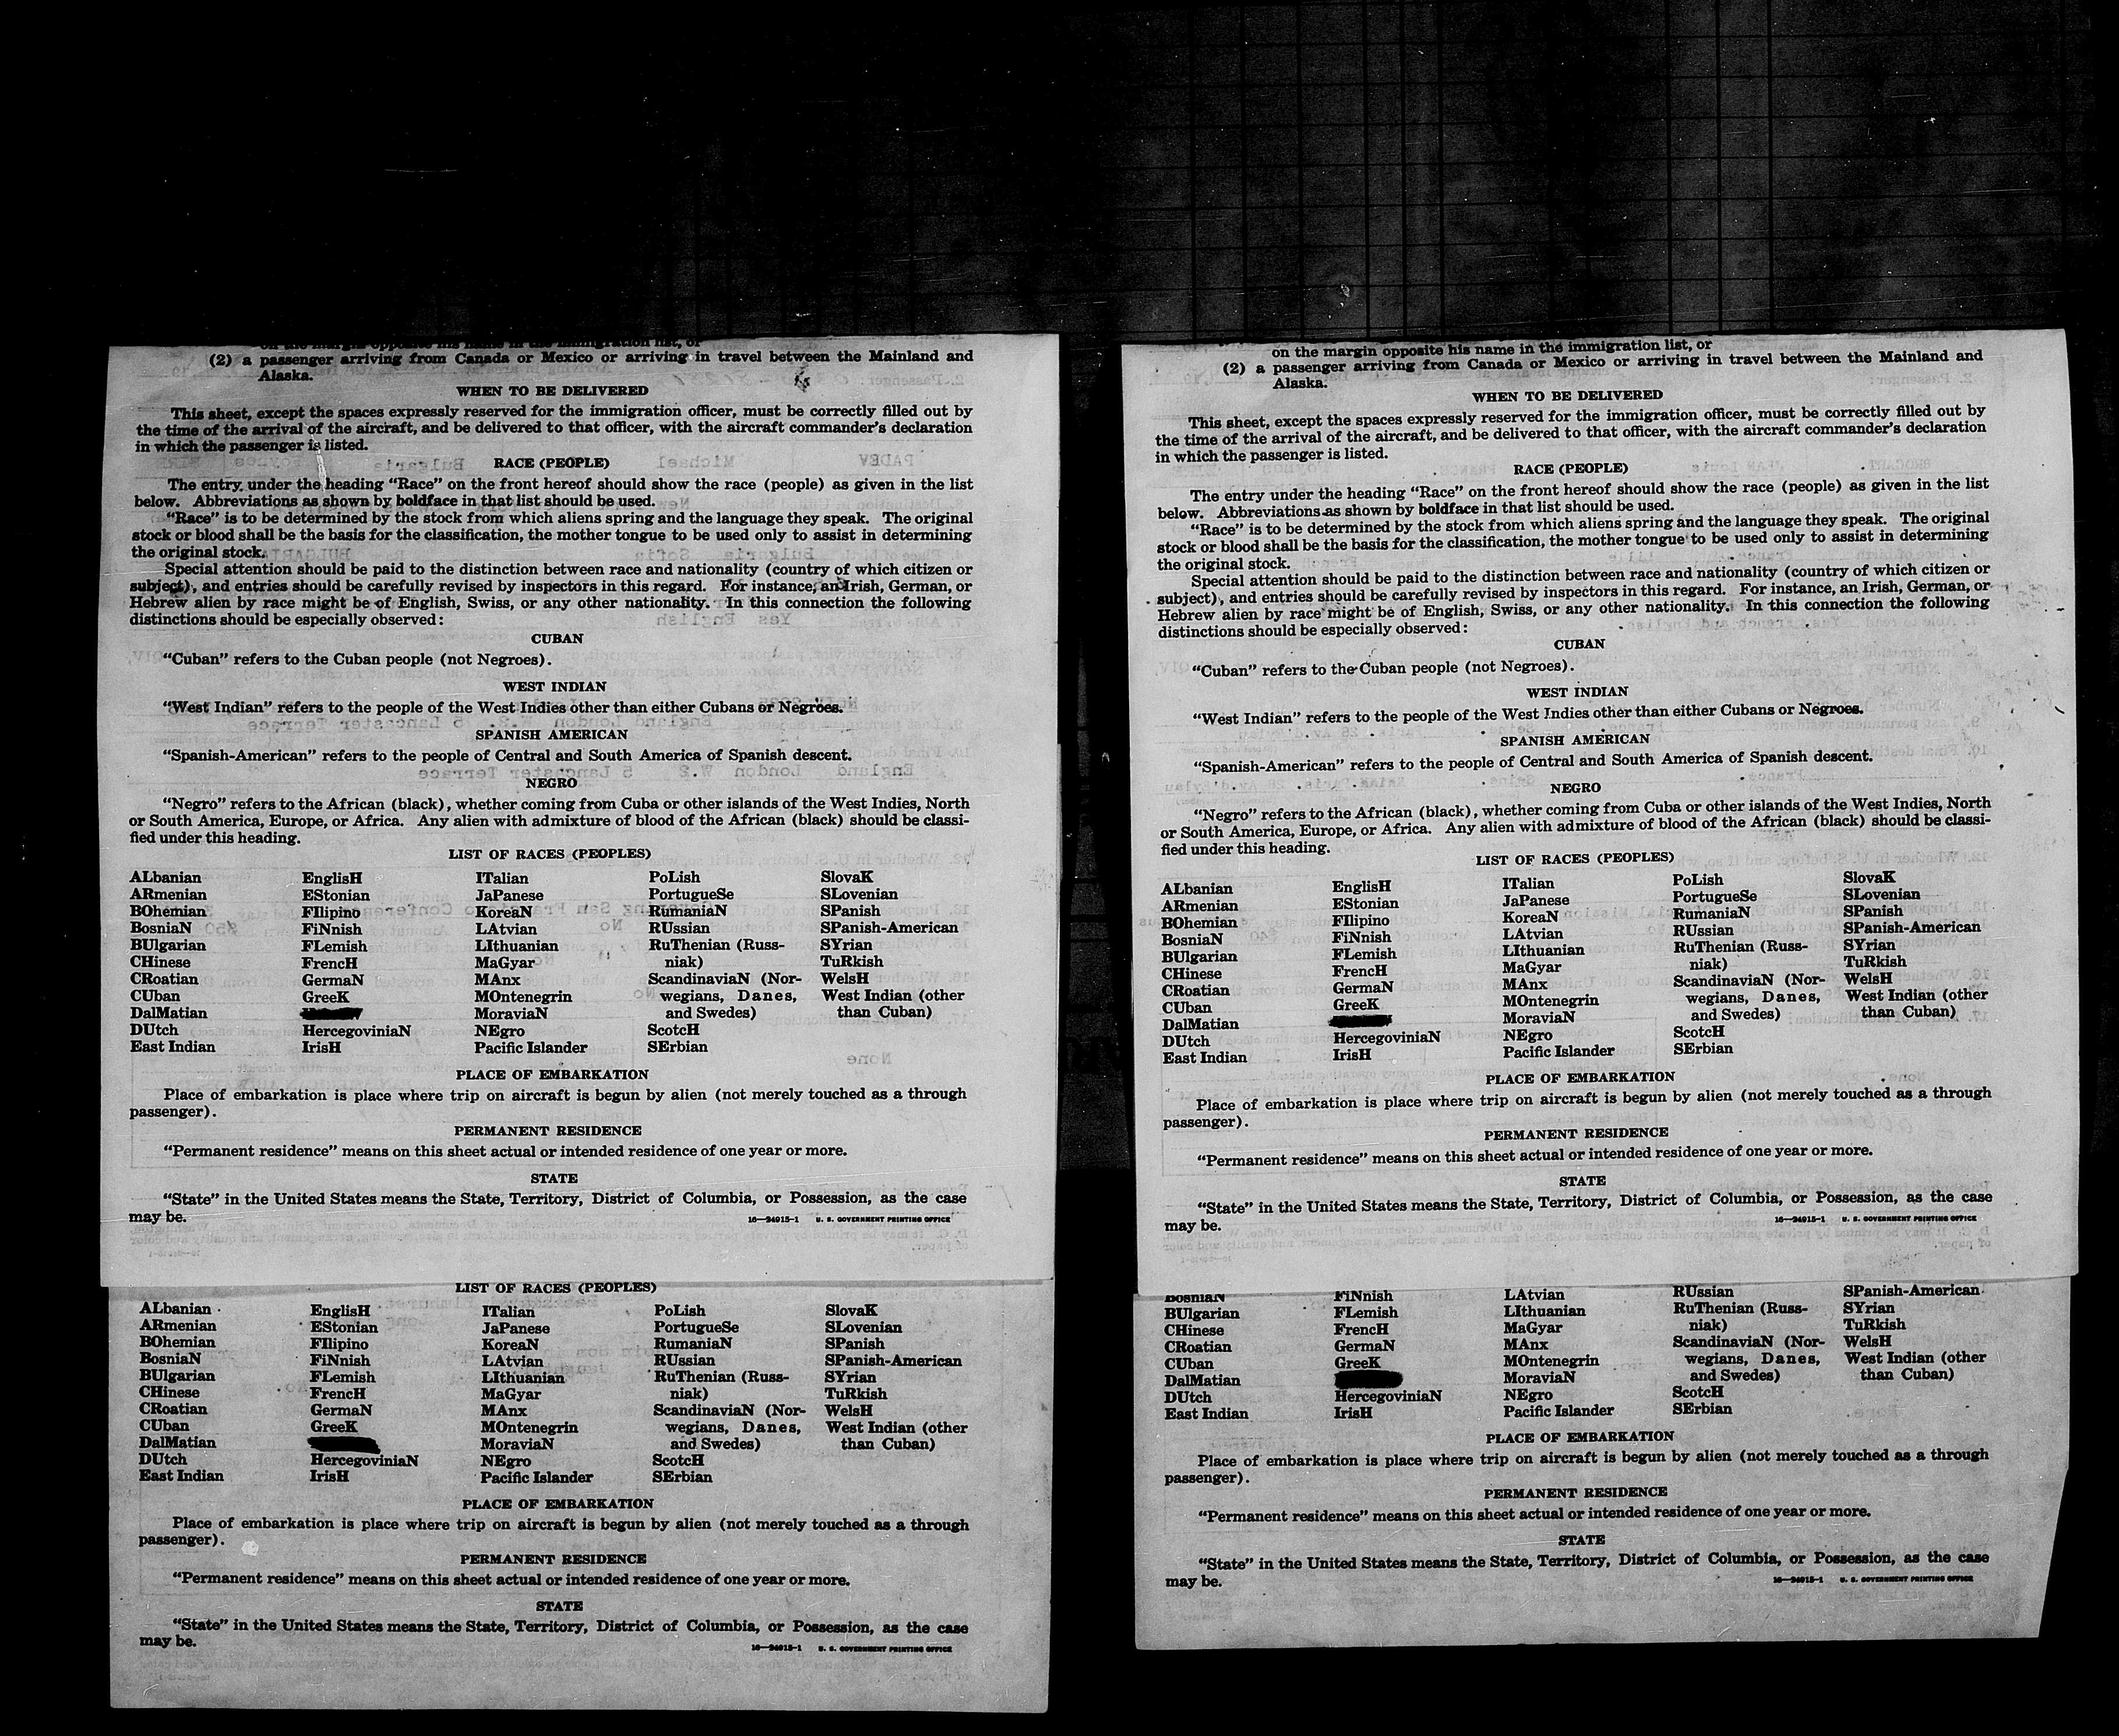 (2) a passenger arriving from Canada or Mexico or arriving in travel between the Mainland and
Alaska.
WHEN TO BE DELIVERED
This sheet, except the spaces expressly reserved for the immigration officer, must be correctly filled out by
the time of the arrival of the aircraft, and be delivered to that officer, with the aircraft commander's declaration
in which the passenger is listed.
RACE (PEOPLE)
The entry under the heading "Race" on the front hereof should show the race (people) as given in the list
below. Abbreviations as shown by boldface in that list should be used.
"Race" is to be determined by the stock from which aliens spring and the language they speak. The original
stock or blood shall be the basis for the classification, the mother tongue to be used only to assist in determining
the original stock.
Special attention should be paid to the distinction between race and nationality (country of which citizen or
subject), and entries should be carefully revised by inspectors in this regard. For instance, an Irish, German, or
Hebrew alien by race might be of English, Swiss, or any other nationality. In this connection the following
distinctions should be especially observed:
CUBAN
"Cuban" refers to the Cuban people (not Negroes).
WEST INDIAN
"West Indian" refers to the people of the West Indies other than either Cubans or Negroes.
SPANISH AMERICAN
"Spanish-American" refers to the people of Central and South America of Spanish descent.
NEGRO
"Negro" refers to the African (black), whether coming from Cuba or other islands of the West Indies, North
or South America, Europe, or Africa. Any alien with admixture of blood of the African (black) should be classi-
fied under this heading.
LIST OF RACES (PEOPLES)
ALbanian EnglisH ITalian PoLish SlovaK
ARmenian EStonian JaPanese PortugueSe SLovenian
BOhemian FIlipino KoreaN RumaniaN SPanish
BosniaN FiNnish LAtvian RUssian SPanish-American
BUlgarian FLemish LIthuanian RuThenian (Russ- SYrian
CHinese FrencH MaGyar niak) TuRkish
CRoatian GermaN MAnx ScandinaviaN (Nor- WelsH
CUban GreeK MOntenegrin wegians, Danes, West Indian (other
DalMatian MoraviaN and Swedes) than Cuban)
DUtch HercegoviniaN NEgro ScotcH
East Indian IrisH Pacific Islander SErbian
PLACE OF EMBARKATION
Place of embarkation is place where trip on aircraft is begun by alien (not merely touched as a through
passenger).
PERMANENT RESIDENCE
"Permanent residence" means on this sheet actual or intended residence of one year or more.
STATE
"State" in the United States means the State, Territory, District of Columbia, or Possession, as the case
may be.
16—24915-1 U. S. GOVERNMENT PRINTING OFFICE
LIST OF RACES (PEOPLES)
ALbanian EnglisH ITalian PoLish SlovaK
ARmenian EStonian JaPanese PortugueSe SLovenian
BOhemian FIlipino KoreaN RumaniaN SPanish
BosniaN FiNnish LAtvian RUssian SPanish-American
BUlgarian FLemish LIthuanian RuThenian (Russ- SYrian
CHinese FrencH MaGyar niak) TuRkish
CRoatian GermaN MAnx ScandinaviaN (Nor- WelsH
CUban GreeK MOntenegrin wegians, Danes, West Indian (other
DalMatian MoraviaN and Swedes) than Cuban)
DUtch HercegoviniaN NEgro ScotcH
East Indian IrisH Pacific Islander SErbian
PLACE OF EMBARKATION
Place of embarkation is place where trip on aircraft is begun by alien (not merely touched as a through
passenger).
PERMANENT RESIDENCE
"Permanent residence" means on this sheet actual or intended residence of one year or more.
STATE
"State" in the United States means the State, Territory, District of Columbia, or Possession, as the case
may be.
16—24915-1 U. S. GOVERNMENT PRINTING OFFICE
on the margin opposite his name in the immigration list, or
(2) a passenger arriving from Canada or Mexico or arriving in travel between the Mainland and
Alaska.
WHEN TO BE DELIVERED
This sheet, except the spaces expressly reserved for the immigration officer, must be correctly filled out by
the time of the arrival of the aircraft, and be delivered to that officer, with the aircraft commander's declaration
in which the passenger is listed.
RACE (PEOPLE)
The entry under the heading "Race" on the front hereof should show the race (people) as given in the list
below. Abbreviations as shown by boldface in that list should be used.
"Race" is to be determined by the stock from which aliens spring and the language they speak. The original
stock or blood shall be the basis for the classification, the mother tongue to be used only to assist in determining
the original stock.
Special attention should be paid to the distinction between race and nationality (country of which citizen or
subject), and entries should be carefully revised by inspectors in this regard. For instance, an Irish, German, or
Hebrew alien by race might be of English, Swiss, or any other nationality. In this connection the following
distinctions should be especially observed:
CUBAN
"Cuban" refers to the Cuban people (not Negroes).
WEST INDIAN
"West Indian" refers to the people of the West Indies other than either Cubans or Negroes.
SPANISH AMERICAN
"Spanish-American" refers to the people of Central and South America of Spanish descent.
NEGRO
"Negro" refers to the African (black), whether coming from Cuba or other islands of the West Indies, North
or South America, Europe, or Africa. Any alien with admixture of blood of the African (black) should be classi-
fied under this heading.
LIST OF RACES (PEOPLES)
ALbanian EnglisH ITalian PoLish SlovaK
ARmenian EStonian JaPanese PortugueSe SLovenian
BOhemian FIlipino KoreaN RumaniaN SPanish
BosniaN FiNnish LAtvian RUssian SPanish-American
BUlgarian FLemish LIthuanian RuThenian (Russ- SYrian
CHinese FrencH MaGyar niak) TuRkish
CRoatian GermaN MAnx ScandinaviaN (Nor- WelsH
CUban GreeK MOntenegrin wegians, Danes, West Indian (other
DalMatian MoraviaN and Swedes) than Cuban)
DUtch HercegoviniaN NEgro ScotcH
East Indian IrisH Pacific Islander SErbian
PLACE OF EMBARKATION
Place of embarkation is place where trip on aircraft is begun by alien (not merely touched as a through
passenger).
PERMANENT RESIDENCE
"Permanent residence" means on this sheet actual or intended residence of one year or more.
STATE
"State" in the United States means the State, Territory, District of Columbia, or Possession, as the case
may be.
16—24915-1 U. S. GOVERNMENT PRINTING OFFICE
BosniaN FiNnish LAtvian RUssian SPanish-American
BUlgarian FLemish LIthuanian RuThenian (Russ- SYrian
CHinese FrencH MaGyar niak) TuRkish
CRoatian GermaN MAnx ScandinaviaN (Nor- WelsH
CUban GreeK MOntenegrin wegians, Danes, West Indian (other
DalMatian MoraviaN and Swedes) than Cuban)
DUtch HercegoviniaN NEgro ScotcH
East Indian IrisH Pacific Islander SErbian
PLACE OF EMBARKATION
Place of embarkation is place where trip on aircraft is begun by alien (not merely touched as a through
passenger).
PERMANENT RESIDENCE
"Permanent residence" means on this sheet actual or intended residence of one year or more.
STATE
"State" in the United States means the State, Territory, District of Columbia, or Possession, as the case
may be.
16—24915-1 U. S. GOVERNMENT PRINTING OFFICE